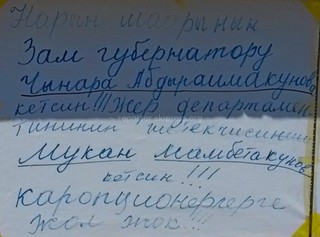 Нарын шаарынын
Зам губернатору
Чынара Абдыраимакунова
кетсин!!! Жер департамен
тининин жетекчисинин
Мукан Мамбетакунов
кетсин!!!
каропционерлерге
жол жок!!!